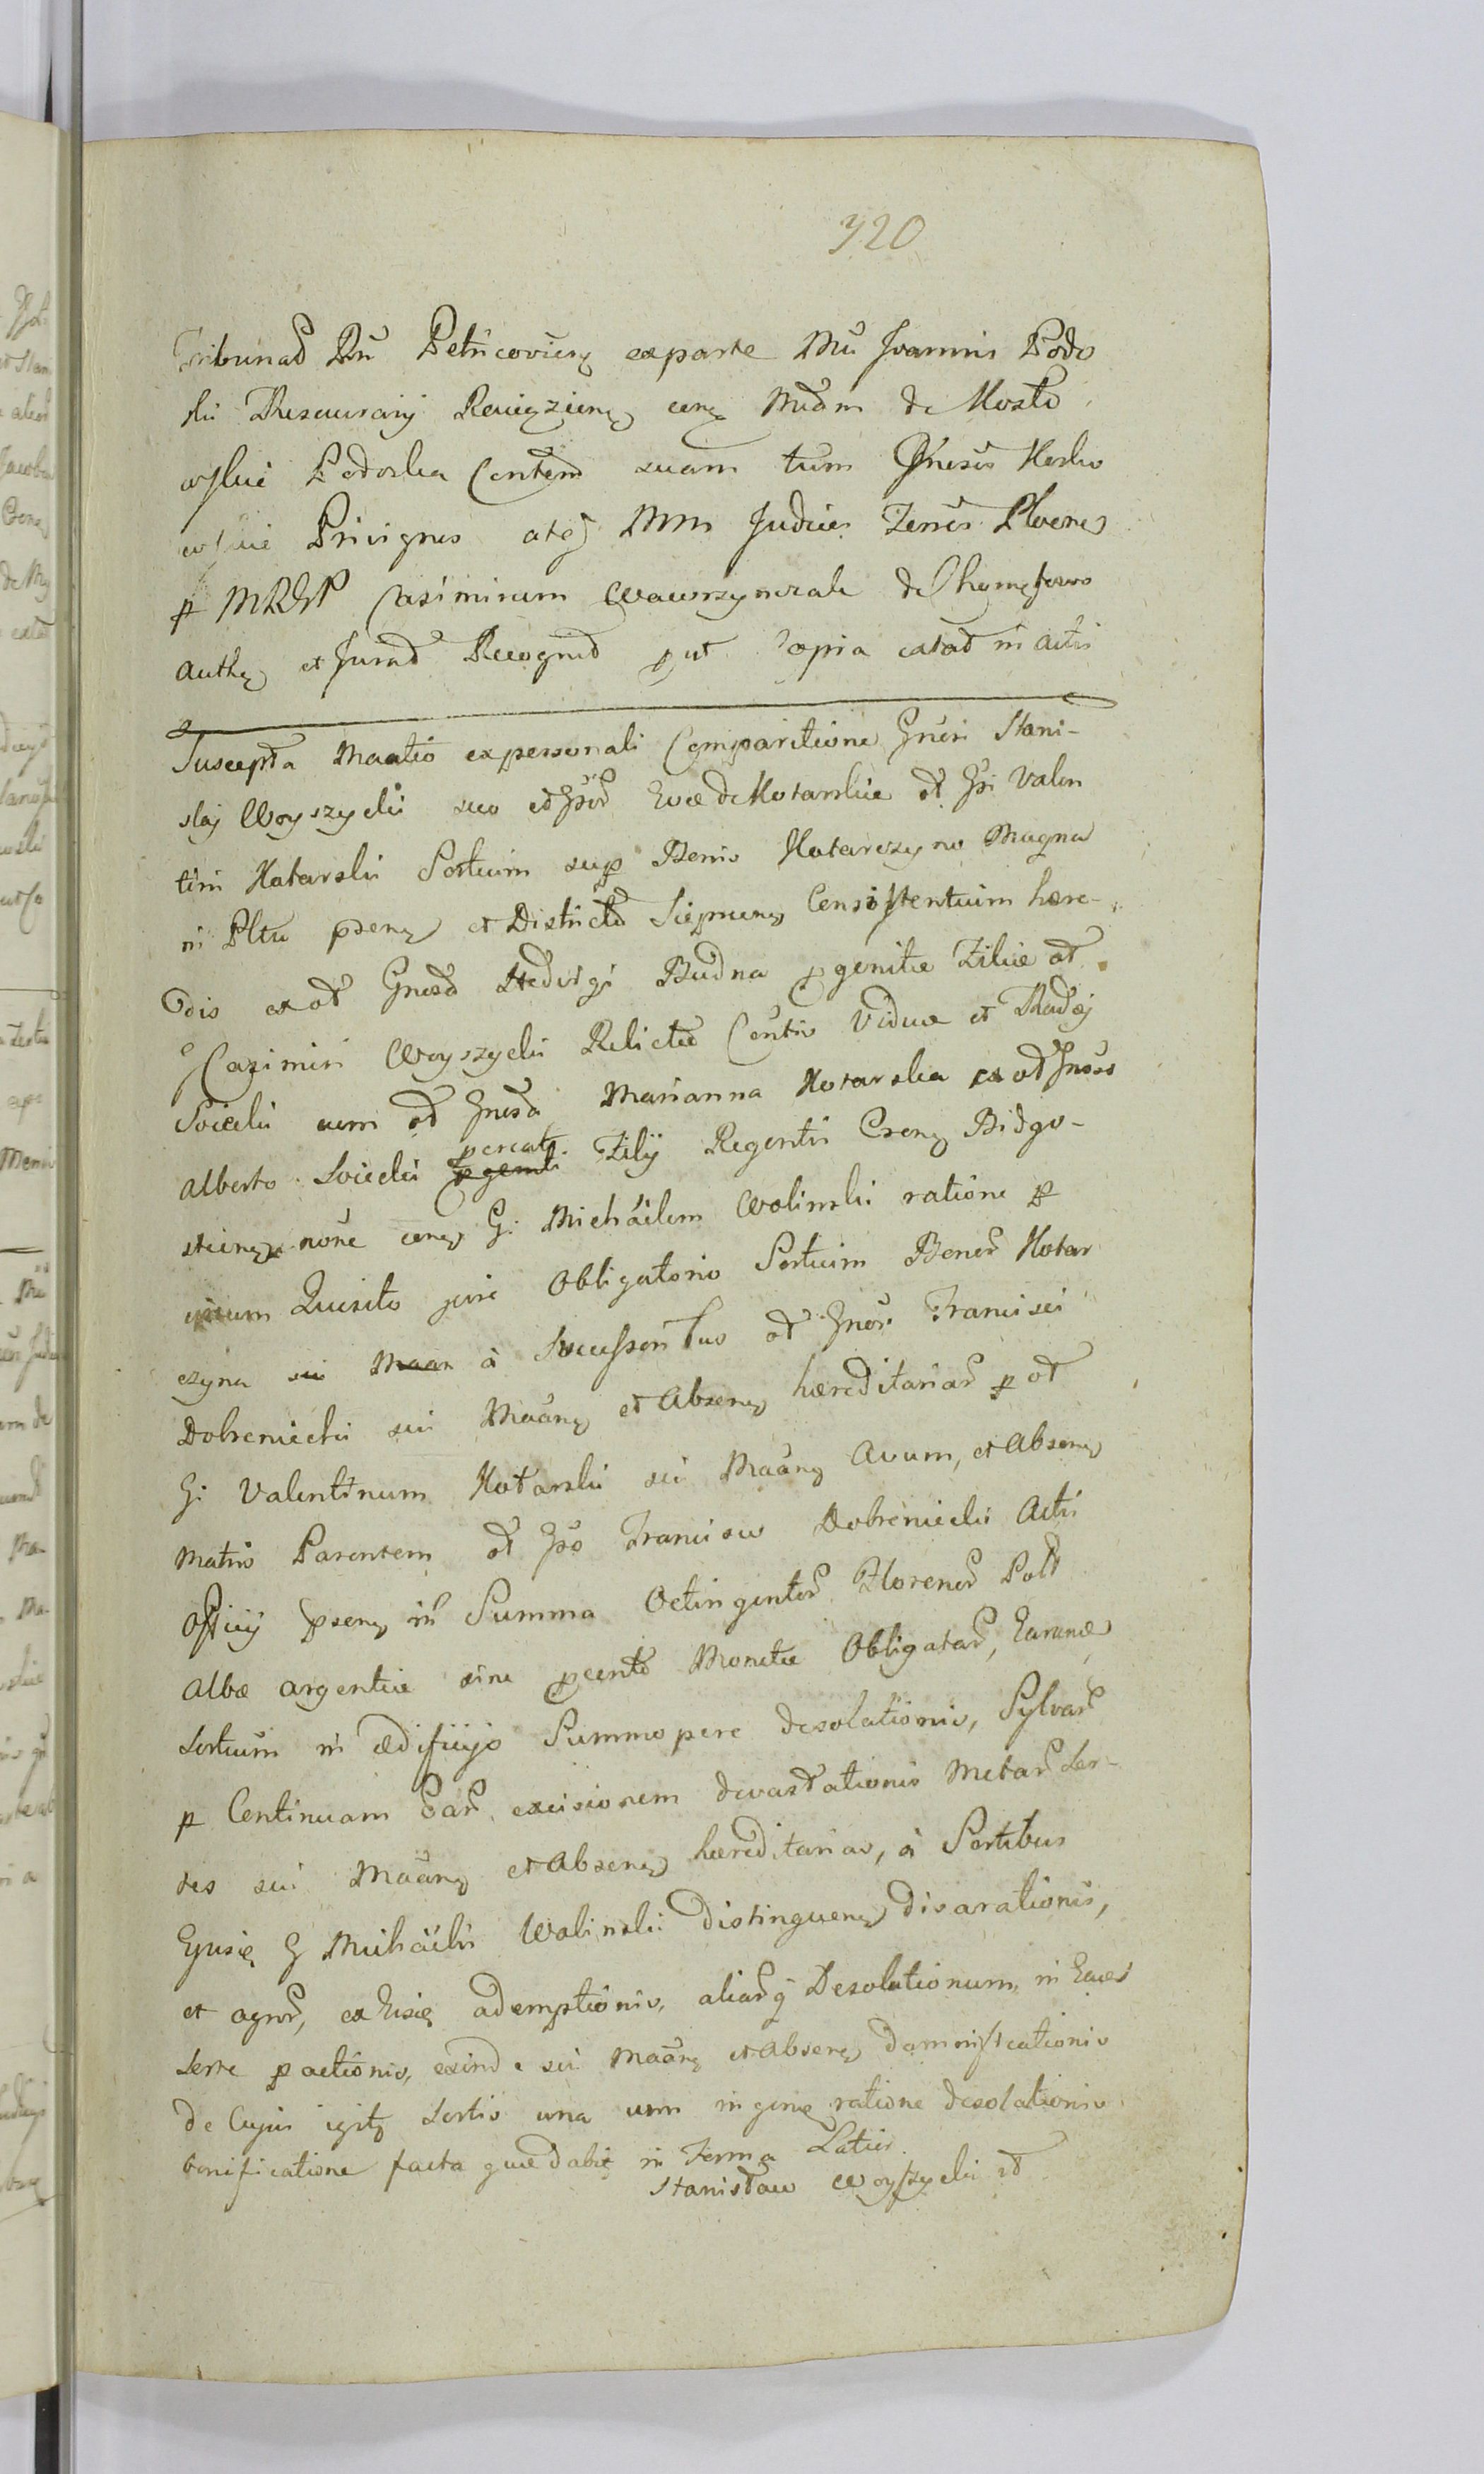 320
Tribunal Rni Petricovien exparte Mci Joannis Podo
ski Thesaurarij Raciązien cong Mcdam de Kosko
wskie Podoska Contem suam tum Gnesos Kosko
wskie Privignos atq Mcm Judicem Terrem Plocen
p MRGP Casimirum Wawrzynczak de
authen et Jurad Recognit put Copia extat in actis
Suscepta Maatio expersonali Comparitione Gnesi Stani-
slai Woyszycki suo et Evae de Kotarskie olt Gsi Valen
tini Kotarski Sortium sup Bonis Kotarczyno Magna
in Pltu psen et Districtu Sieprcen Consistentium haere-
dis ex olt Gnesa Hedvigi Budna pgenitae Filiae olt
G Cazimiri Woyszycki Relictae Contis Viduae et Thadei
Swiecki cum olt Gnesa Marianna Kotarska ex olt Gnoso
Alberto Swiecki pgenti pcreati Filij Regentis Cren Bidgo-
stien none cong G: Michaelem Wolinski ratione p
ipsum Quesito jure Obligatorio Sortium Bonor Kotar
czyna sui Maan à Successoribus olt Gnor Francisci
Dobrzeniecki sui Maang et Absen haereditariar p olt
G: Valentinum Kotarski sui Maang Avum, et Absen
Matris Parentem olt Gso Francisco Dobrzeniecki Actis
Officij psen in Summa Octingentor Florenor Poll
albae argenteae sine pcento Monetae Obligatar, Earumq
Sortium in aedificijs Summopere desolationis, Sylvar
p Continuam Ear excisionem devastationis Metar Sor-
tes sui Maang et Absen haereditarias, à Sortibus
Ejusdem G Michaelis Wolinski Distinguen disarationis,
et agror, ex Eisdem ademptionis, aliarq Desolationum in Eadem
Sorte pactionis, exinde sui Maang et Absen damnificationis
de Cujus igitur Sortis una cum ingeni ratione desolationis
bonificatione facta quae dabit in Termo Latius.
Stanisław Woyszycki